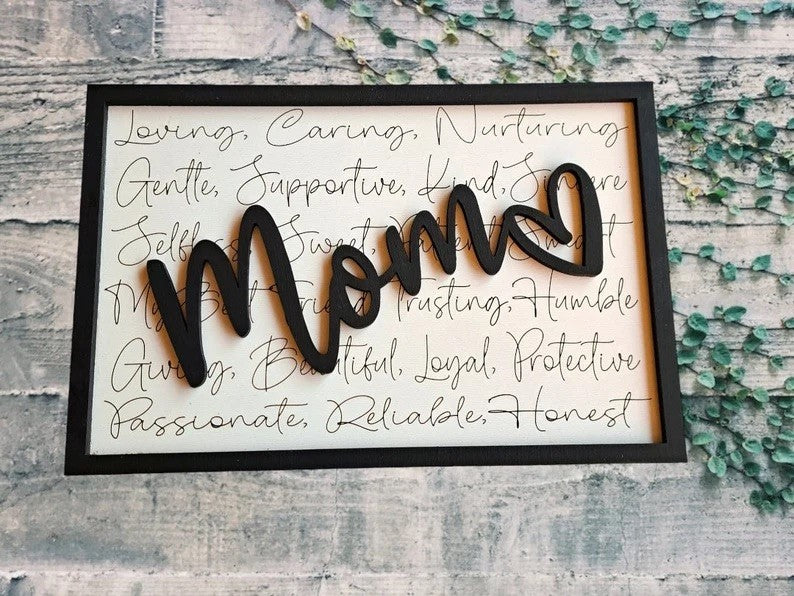 Loving, Caring, Nurturing
Gentle, Supportive, Kind, Sincere
Selfless, Sweet, Patient, Smart
Mom
My Best Friend, Trusting, Humble
Giving, Beautiful, Loyal, Protective
Passionate, Reliable, Honest